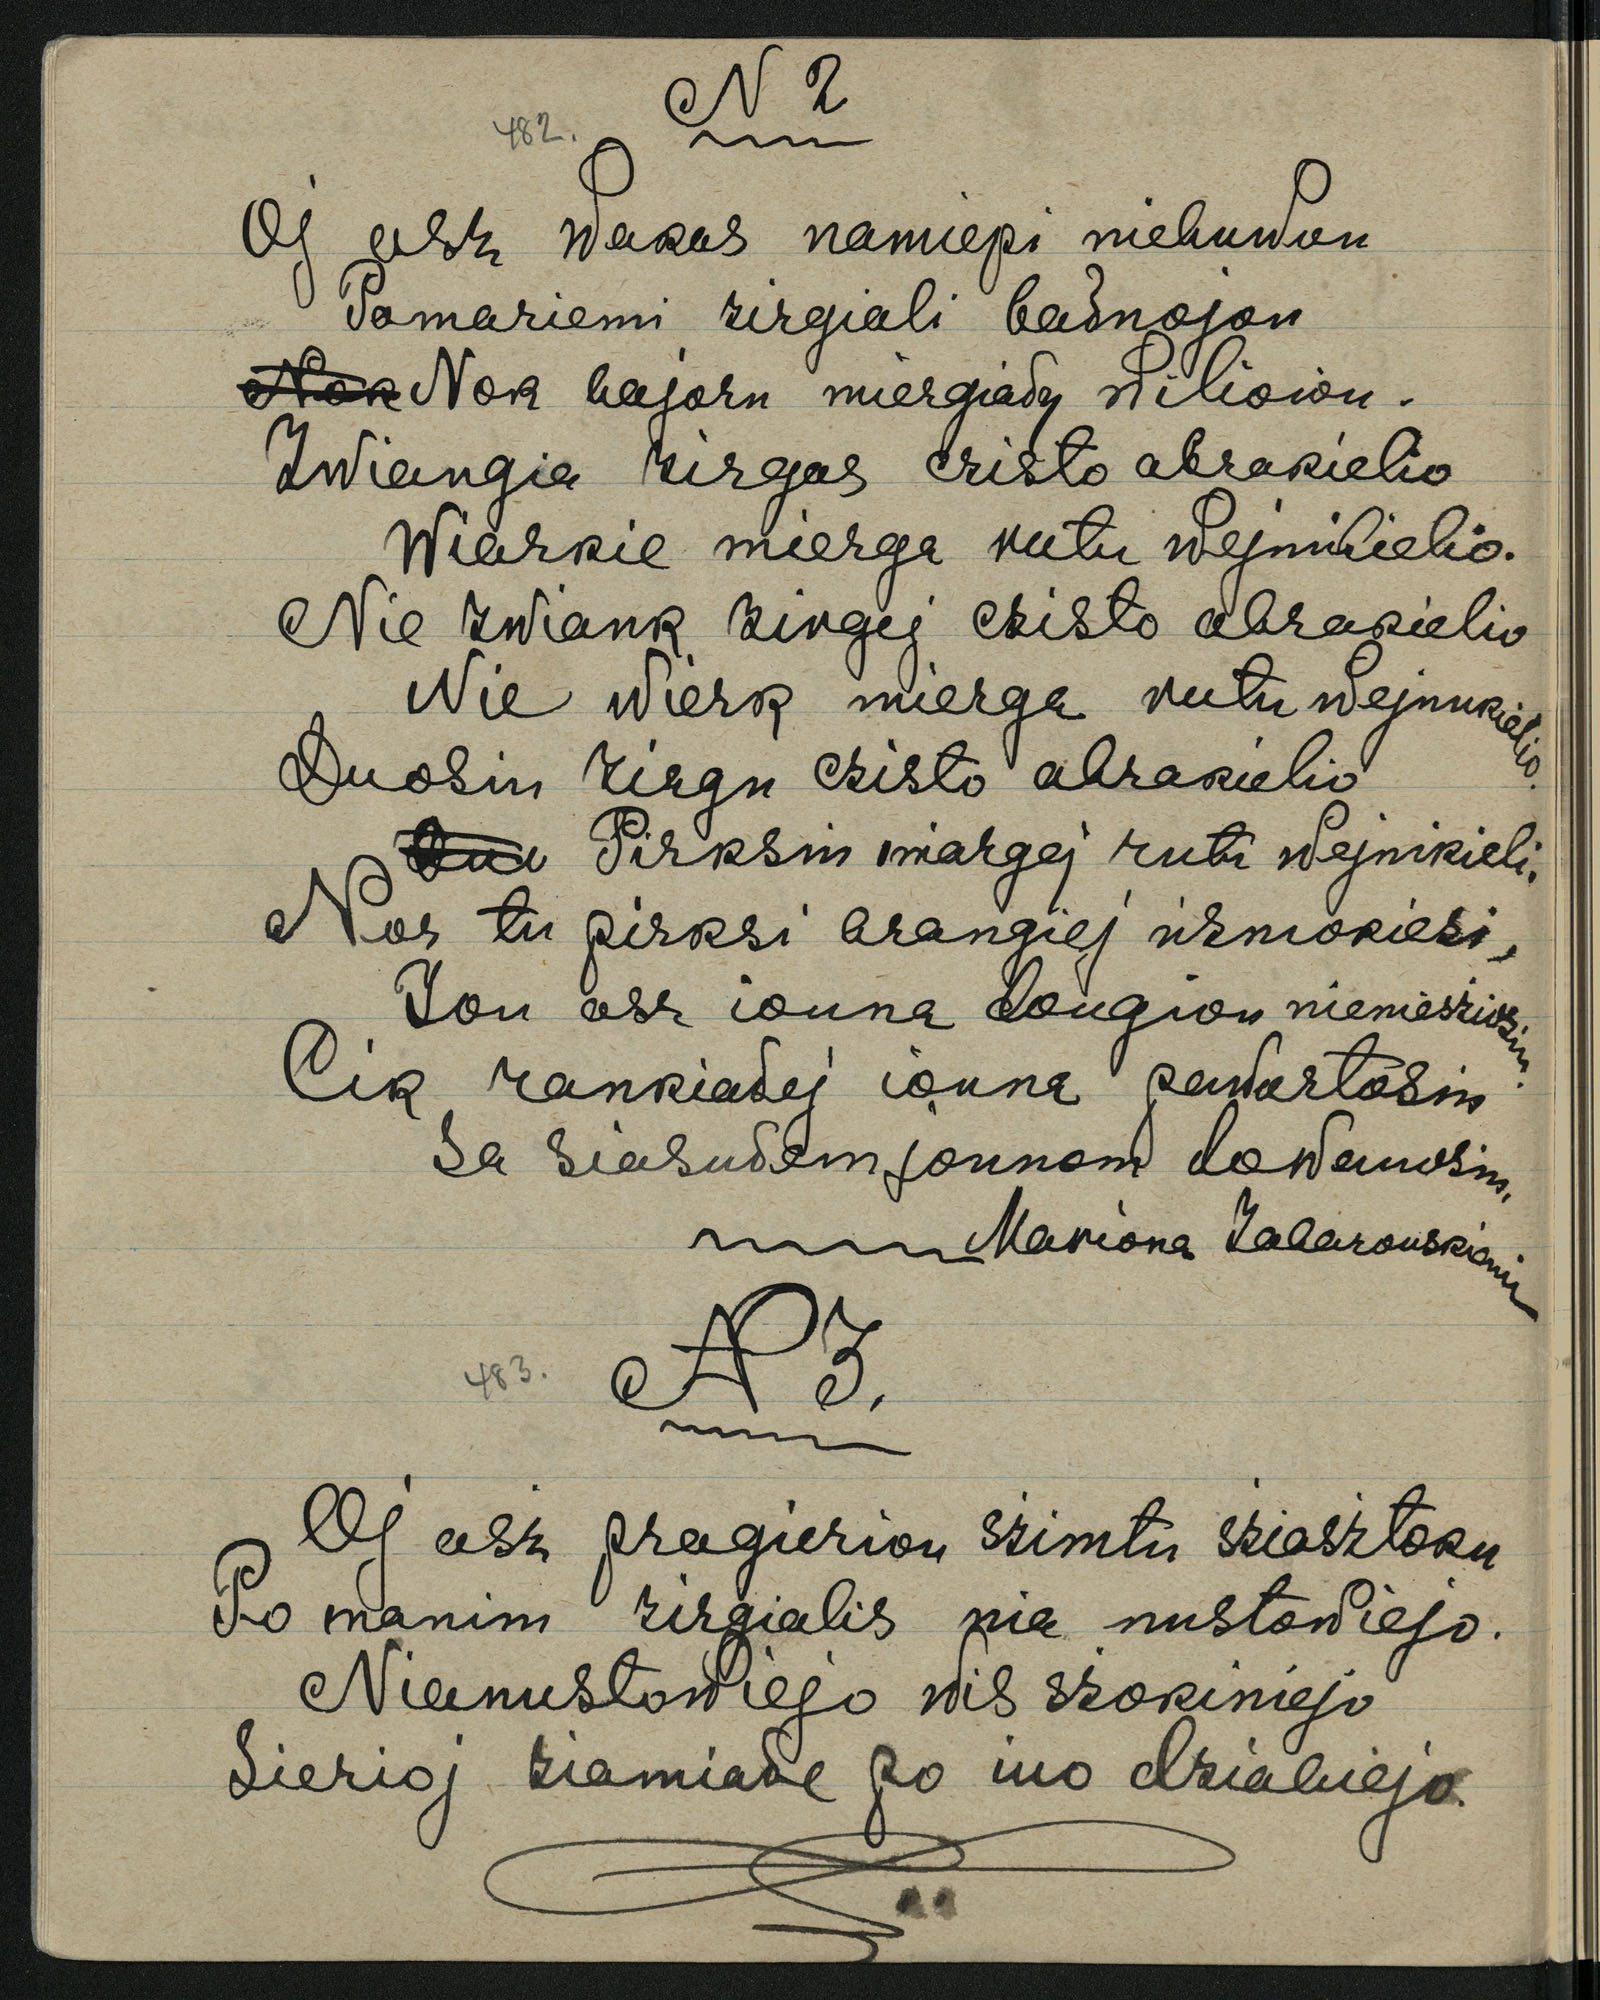 N 2
482.
Oj asz wakas namiepi niebuwau
Pamariemi zirgiali baдnojou
Nok Nok bajoru miergiady wilioiou.
Zwiangia zirgas czisto abrakielio
Wiarkie mierga rutu wejnikielio.
Nie zwiank zirgej czisto abrakielio
Nie wierk mierga rutu wejnukielio.
Duosiu zirgu czisto abrakielio
Pirksiu miargej rutu wejnikieli.
Nor tu pirksi brangiej uzmokiesi,
Zou asz iouna dougiou niemieszkiosiu.
Cik rankiadej iouna pawartosiu
Sa siasudem jounom dawanosiu.
Mariona Zabarouskieniu
483.
N 3.
Oj asz pragieriou szimtu sziasztoku
Po manim zirgialis nia nustowiejo.
Nianustowiejo wis szokiniejo
Sierioj ziamiade po iuo dziabiejo.